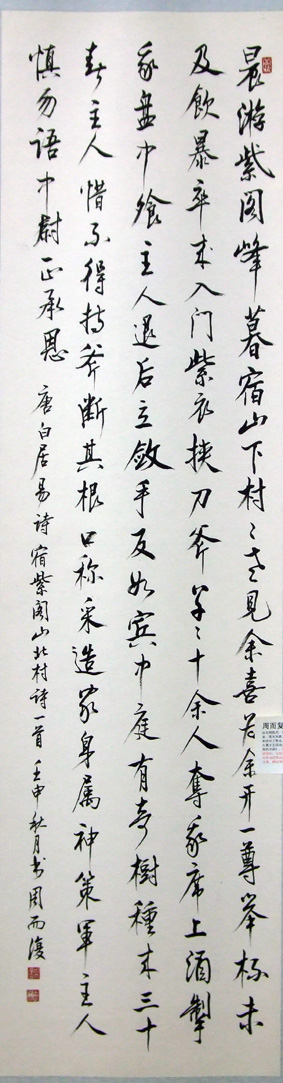 晨游紫阁峰暮宿山下村〻老见余喜为余开一尊举杯未
及飲暴卒来入门紫衣挟刀斧草〻十余人奪我席上酒掣
我盘中飧主人退后立敛手反如宾中庭有奇樹種来三十
春主人惜不得持斧断其根口称采造家身属神策军主人
慎勿语中尉正承恩 唐白居易诗宿紫阁山北村诗一首 壬申秋月书周而復
周而复